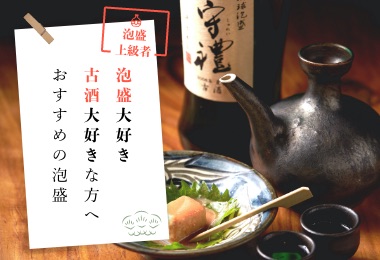 泡盛
上級者
泡盛大好き
古酒大好きな方へ
おすすめの泡盛
守禮
古酒